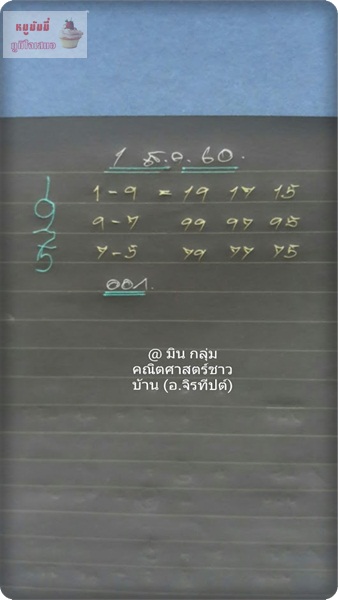 หมูมัมมี่
ภูมิใจเสนอ
1 ธ.ค. 60.
1 9 7 5
1 - 9 = 19 17 15
9 - 7 99 97 95
7 - 5 79 77 75
@ มิน กลุ่ม
คณิตศาสตร์ชาว
บ้าน (อ.จิรทีปต์)